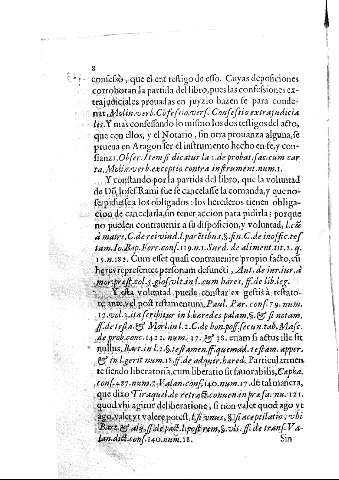 8
confesso, que el era testigo de esso. Cuyas deposiciones
corroboran la partida del libro, pues las confessiones ex-
trajudiciales prouadas en juyzio hazen se para conde-
nar, Molin. verb. Cofessio vers. Confessio extrajudicia
lis. Y mas confessando lo mismo los dos testigos del acto,
que con ellos, y el Notario, sin otra prouanza alguna, se
prueua en Aragon ser el instrumento hecho en fe, y con-
fianza, Obser. Item si dicatur la 2. de probat. fac. cum car
ta, Molin. verb. exceptio contra instrument. num. 1.
Y constando por la partida del libro, que la voluntad
de Dō Iosef Rami fue se cancelasse la comanda, y que no
se pidiesse a los obligados: los herederos tienen obliga-
cion de cancelarla, sin tener accion para pidirla; porque
no pueden contrauenir a su disposicion, y voluntad,
à matre, C. de reiuind. l. partibus, §. fin. C. de inoffic. tes
tam. Io. Bap. Ferr. cons. 119. n. 1. Surd. de aliment. tit. 2. q.
15. n. 182. Cum esset quasi contrauenire proprio facto, cū
heres representes personam defuncti,
Y esta voluntad puede constar ex gestis à testato-
re ante, vel post testamentum, Paul. Par. cons. 79. num.
12. vol. 2. ita scribitur in l. heredes palam, §.
ff. de testa. & Marl. in l. 2. C. de bon. poss. secun. tab. Masc.
de prob. conc. 1422. num. 37. & 38. etiam si actus ille sit
nullus, Bart. in l. 2. §. testamen. ff. quemad. testam. apper.
& in l. gerit num. 15. ff. de adquir. hered. Particularmen
te siendo liberatoria, cum liberatio sit fauorabilis, Capha.
cons. 487. num. 2. Valan. cons. 140. num. 17. de tal manera,
que dixo Tiraquel. de retract. conuen. in præfa. nu. 121.
quod vbi agitur de liberatione, si non valet quod ago vt
ago, valet vt valere potest, vbi
Bart. & alij, ff. de pact. l. post rem, §. vlt. ff. de trans. Va-
lan. dict. cons. 140. num. 18.
Sin